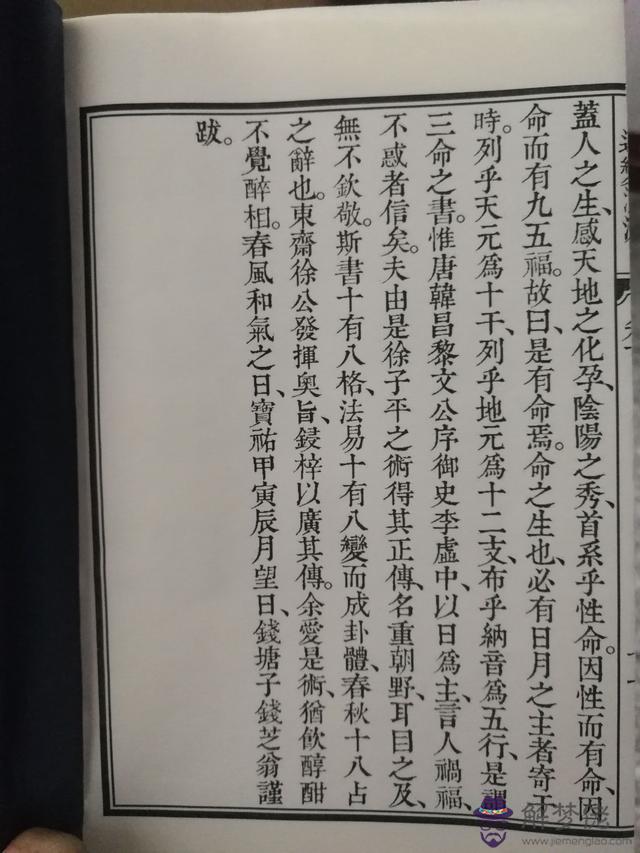 蓋人之生、感天地之化孕、陰陽之秀、首系乎性命。因性而有命、因
命而有九五福。故曰、是有命焉。命之生也、必有日月之主者寄
時。列乎天元為十干、列乎地元為十二支、布乎納音為五行、是
三命之書。惟唐韓昌黎文公序御史李虛中、以日為主、言人禍福、
不惑者信矣。夫由是徐子平之術得其正傳、名重朝野、耳目之及、
無不欽敬。斯書十有八格、法易十有八變而成卦、體春秋十八占
之辭也。東齋徐公發揮奧旨、鋟梓以廣其傳。余愛是術、猶飲醇酣
不覺醉相。春風和氣之日、寶祐甲寅辰月望日、錢塘子錢芝翁謹
跋。
解梦佬
www.jiemenglao.com